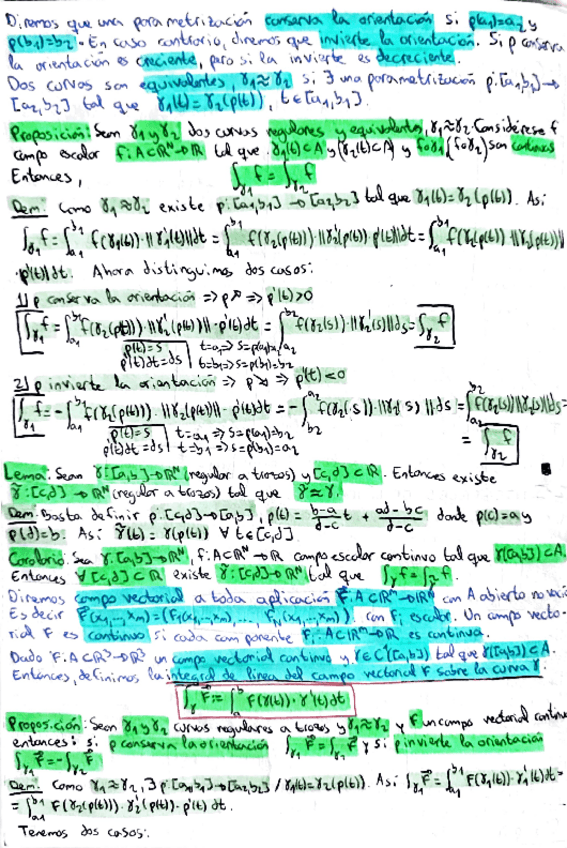 Diremos que una parametrización conserva la orientación si p(a₁)=a₂ y
p(b₁)=b₂. En caso contrario, diremos que invierte la orientación. Si p conserva
la orientación es creciente, pero si la invierte es decreciente.
Dos curvas son equivalentes, γ₁≈γ₂ si ∃ una parametrización p:[a₁,b₁]→
[a₂,b₂] tal que γ₁(t)=γ₂(p(t)), t∈[a₁,b₁].
Proposición: Sean γ₁ y γ₂ dos curvas regulares y equivalentes, γ₁≈γ₂. Considérese f
campo escalar f:A⊂ℝᴺ→ℝ tal que γ₁(t)⊂A y (γ₂(t)⊂A) y f∘γ₁ (f∘γ₂) son continuas
Entonces,
∫_γ₁ f = ∫_γ₂ f
Dem: Como γ₁≈γ₂ existe p:[a₁,b₁]→[a₂,b₂] tal que γ₁(t)=γ₂(p(t)). Así
∫_γ₁ f = ∫_a₁^b₁ f(γ₁(t))·||γ₁'(t)||dt = ∫_a₁^b₁ f(γ₂(p(t)))·||γ₂'(p(t))·p'(t)||dt = ∫_a₁^b₁ f(γ₂(p(t)))·||γ₂'(p(t))||
·|p'(t)|dt. Ahora distinguimos dos casos:
1) p conserva la orientación => p↗ => p'(t)>0
∫_γ₁ f = ∫_a₁^b₁ f(γ₂(p(t)))·||γ₂'(p(t))||·p'(t)dt = ∫_a₂^b₂ f(γ₂(s))·||γ₂'(s)||ds = ∫_γ₂ f
p(t)=s t=a₁=>s=p(a₁)=a₂
p'(t)dt=ds t=b₁=>s=p(b₁)=b₂
2) p invierte la orientación => p↘ => p'(t)<0
∫_γ₁ f = -∫_a₁^b₁ f(γ₂(p(t)))·||γ₂'(p(t))||·p'(t)dt = -∫_b₂^a₂ f(γ₂(s))·||γ₂'(s)||ds = ∫_a₂^b₂ f(γ₂(s))||γ₂'(s)||ds =
p(t)=s t=a₁=>s=p(a₁)=b₂
p'(t)dt=ds t=b₁=>s=p(b₁)=a₂
= ∫_γ₂ f
Lema: Sean γ:[a,b]→ℝᴺ (regular a trozos) y [c,d]⊂ℝ. Entonces existe
γ̃:[c,d]→ℝᴺ (regular a trozos) tal que γ̃≈γ.
Dem: Basta definir p:[c,d]→[a,b], p(t)= (b-a)/(d-c) t + (ad-bc)/(d-c) donde p(c)=a y
p(d)=b. Así γ̃(t)=γ(p(t)) ∀t∈[c,d].
Corolario: Sea γ:[a,b]→ℝᴺ, f:A⊂ℝᴺ→ℝ campo escalar continuo tal que γ([a,b])⊂A.
Entonces ∀[c,d]⊂ℝ existe γ̃:[c,d]→ℝᴺ tal que ∫_γ f = ∫_γ̃ f.
Diremos campo vectorial a toda aplicación F⃗:A⊂ℝᴺ→ℝᴺ con A abierto no vacío
Es decir F⃗(x₁,...,xₘ)=(F₁(x₁,...,xₘ),..., F_N(x₁,...,xₘ)) con Fᵢ escalar. Un campo vecto-
rial F es continuo si cada componente Fᵢ:A⊂ℝᴺ→ℝ es continua.
Dado F:A⊂ℝᴺ→ℝᴺ un campo vectorial continuo y γ∈C¹([a,b]) tal que γ([a,b])⊂A.
Entonces, definimos la integral de línea del campo vectorial F sobre la curva γ.
∫_γ F⃗ := ∫_a^b F(γ(t))·γ'(t)dt
Proposición: Sean γ₁ y γ₂ curvas regulares a trozos y γ₁≈γ₂ y F un campo vectorial continuo
entonces: si p conserva la orientación ∫_γ₁ F⃗ = ∫_γ₂ F⃗ y si p invierte la orientación
∫_γ₁ F⃗ = -∫_γ₂ F⃗
Dem: Como γ₁≈γ₂, ∃ p:[a₁,b₁]→[a₂,b₂] / γ₁(t)=γ₂(p(t)). Así ∫_γ₁ F⃗ = ∫_a₁^b₁ F(γ₁(t))·γ₁'(t)dt =
= ∫_a₁^b₁ F(γ₂(p(t)))·γ₂'(p(t))·p'(t) dt.
Tenemos dos casos: